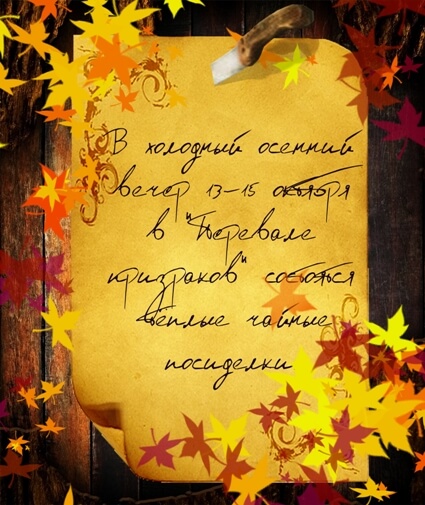 В холодный осенний
вечер 13-15 октября
в "Перевале
призраков" состоятся
тёплые чайные
посиделки